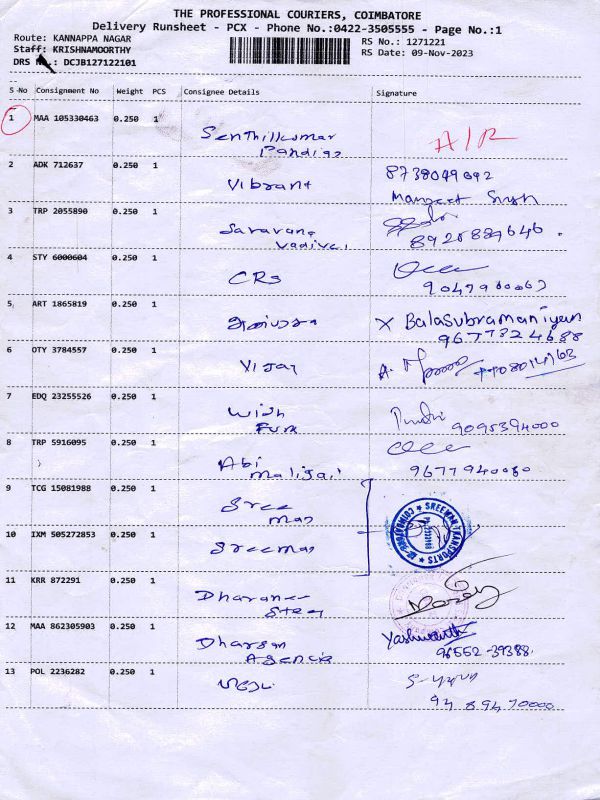 THE PROFESSIONAL COURIERS, COIMBATORE
Delivery Runsheet - PCX - Phone No.:0422-3505555 - Page No.:1
Route: KANNAPPA NAGAR RS No.: 1271221
Staff: KRISHNAMOORTHY RS Date: 09-Nov-2023
DRS No.: DCJB127122101
S No Consignment No Weight PCS Consignee Details Signature
1 MAA 105330463 0.250 1 Senthilkumar A/R
2 ADK 712637 0.250 1 Vibrant 8738049892
Mangeet Singh
3 TRP 2055890 0.250 1 Saravana
Vadivel
4 STY 6000604 0.250 1 CRS
5 ART 1865819 0.250 1 X Balasubramaniyan
6 OTY 3784557 0.250 1 Vijay
7 EDQ 23255526 0.250 1 Wish 9095394000
8 TRP 5916095 0.250 1 Abi
Maligai 9677940080
9 TCG 15081988 0.250 1 Sree
Man SREEMAN TRANSPORTS
10 IXM 505272853 0.250 1 Sreeman
11 KRR 872291 0.250 1 Dharanee
Steel
12 MAA 862305903 0.250 1 Dharsan Yashwanth
Agencie 96552-39388
13 POL 2236282 0.250 1
9489470000